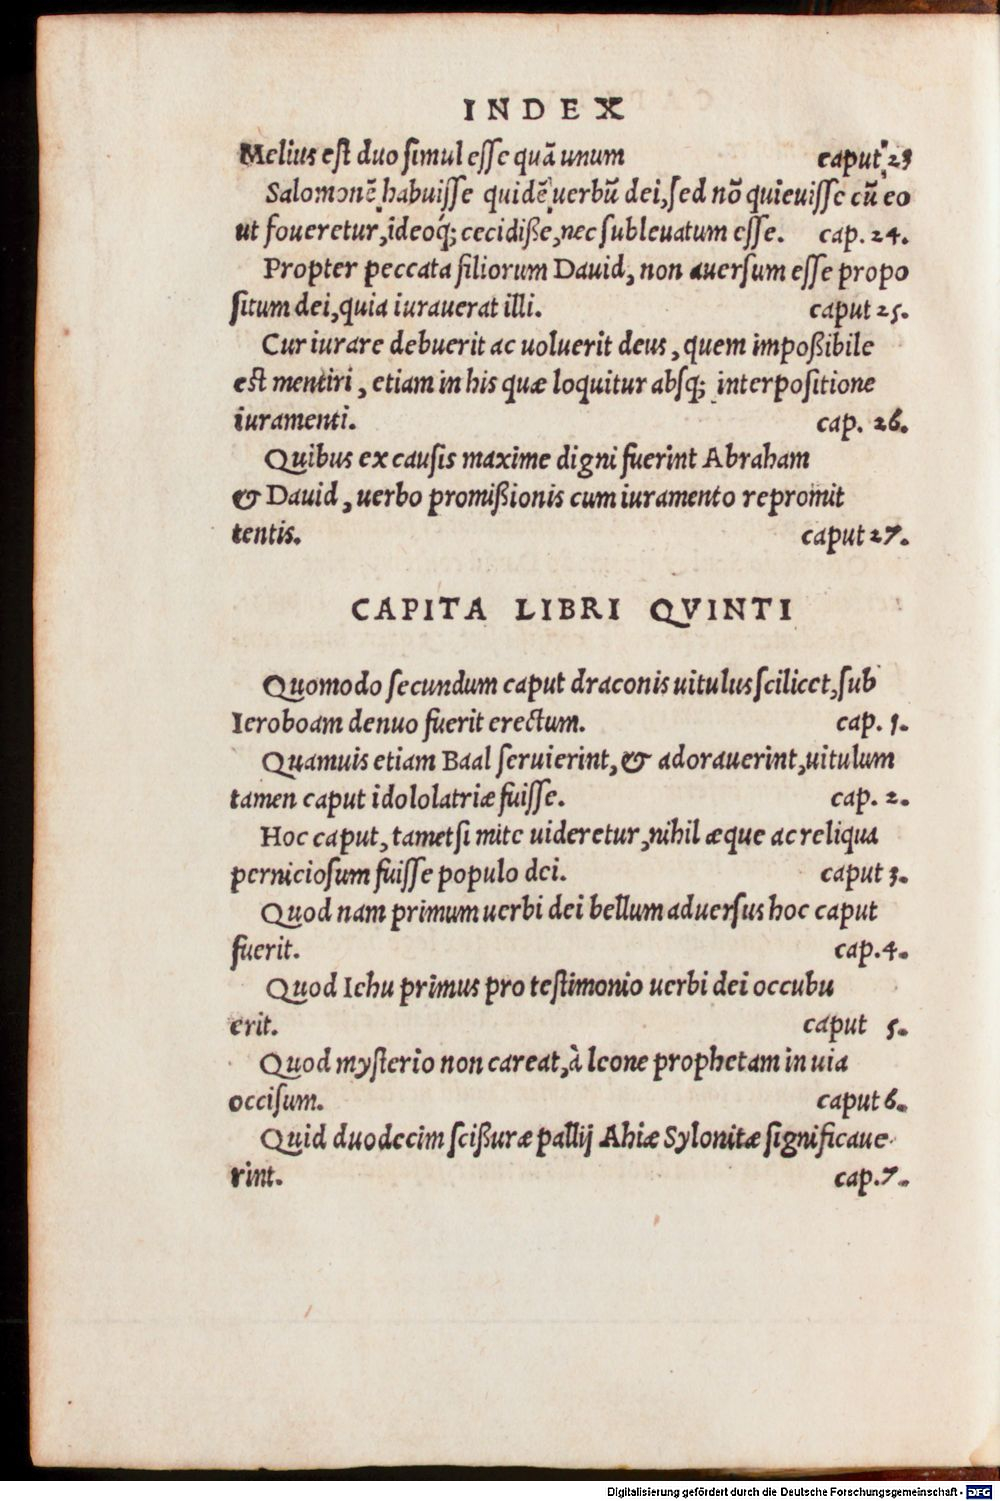 INDEX
Melius eſt duo ſimul eſſe quā unum caput 23
Salomonē habuiſſe quidē uerbū dei, ſed nō quieuiſſe cū eo
ut foueretur, ideoq́; cecidiße, nec ſubleuatum eſſe. cap. 24.
Propter peccata filiorum Dauid, non auerſum eſſe propo
ſitum dei, quia iurauerat illi. caput 25.
Cur iurare debuerit ac uoluerit deus, quem impoßibile
est mentiri, etiam in his quæ loquitur abſq; interpoſitione
iuramenti. cap. 26.
Quibus ex cauſis maxime digni fuerint Abraham
& Dauid, uerbo promißionis cum iuramento repromit
tentis. caput 27.
CAPITA LIBRI QVINTI
Quomodo ſecundum caput draconis uitulus ſcilicet, ſub
Ieroboam denuo fuerit erectum. cap. 1.
Quamuis etiam Baal ſeruierint, & adorauerint, uitulum
tamen caput idololatriæ fuiſſe. cap. 2.
Hoc caput, tametſi mite uideretur, nihil æque ac reliqua
pernicioſum fuiſſe populo dei. caput 3.
Quod nam primum uerbi dei bellum aduerſus hoc caput
fuerit. cap. 4.
Quod Iehu primus pro teſtimonio uerbi dei occubu
erit. caput 5.
Quod myſterio non careat, à leone prophetam in uia
occiſum. caput 6.
Quid duodecim ſcißuræ pallij Ahiæ Sylonitæ ſignificaue
rint. cap. 7.
Digitalisierung gefördert durch die Deutsche Forschungsgemeinschaft - DFG